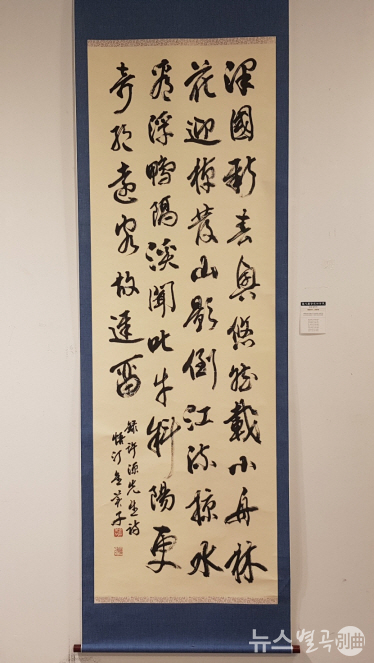 澤國新春興悠然載小舟林
花迎棹發山影倒江流掠水
看浮鴨隔溪聞叱牛斜陽更
奇絶遠客故遲留
錄許源先生詩
뉴스별곡別曲